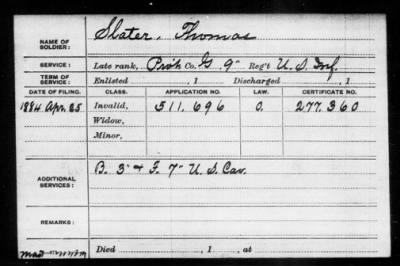 NAME OF SOLDIER: Slater, Thomas
SERVICE: Late rank, Priv Co. G. 9" Reg't U.S. Inf.
TERM OF SERVICE: Enlisted , 1 Discharged , 1
DATE OF FILING. CLASS. APPLICATION NO. LAW. CERTIFICATE NO.
1884 Apr. 25 Invalid, 511.696 O. 277.360
Widow,
Minor,
ADDITIONAL SERVICES: B. 3" & F. 7" U.S. Cav.
REMARKS:
Died , 1 , at